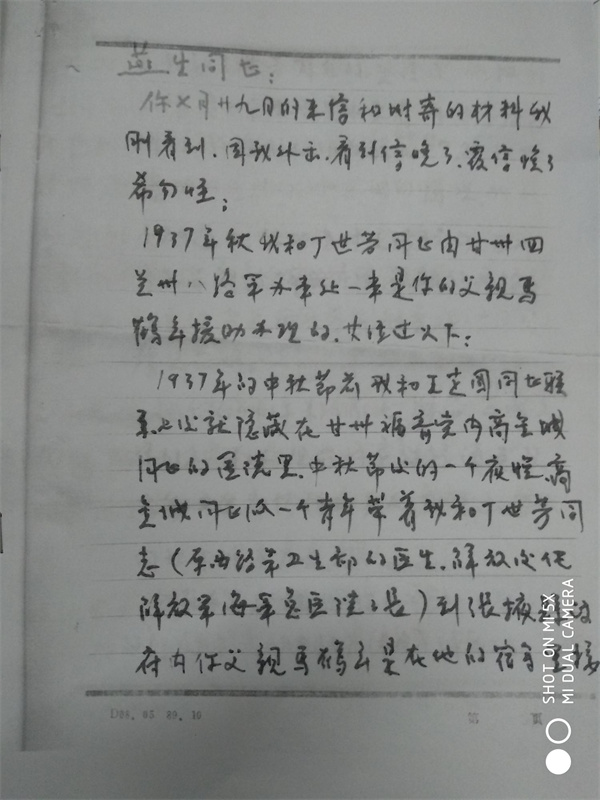 燕生同志：
你×月廿九日的来信和附寄的材料我
刚看到。因我外出，看到信晚了，覆信晚了
希勿怪；
1937年秋我和丁世芳同志由甘州回
兰州八路军办事处一事是你的父亲马
鹤年援助办理的，其经过如下：
1937年的中秋节前我和王定国同志联
系上后就隐藏在甘州福音堂内高金城
同志的医院里，中秋节后的一个夜晚，高
金城同志派一个青年带着我和丁世芳同
志（原西路军卫生部的医生，解放后任
解放军海军总医院院长）到张掖县政
府内你父亲马鹤年是在他的宿舍里接
D28.05 89.10
第 页
SHOT ON MI 5X
MI DUAL CAMERA